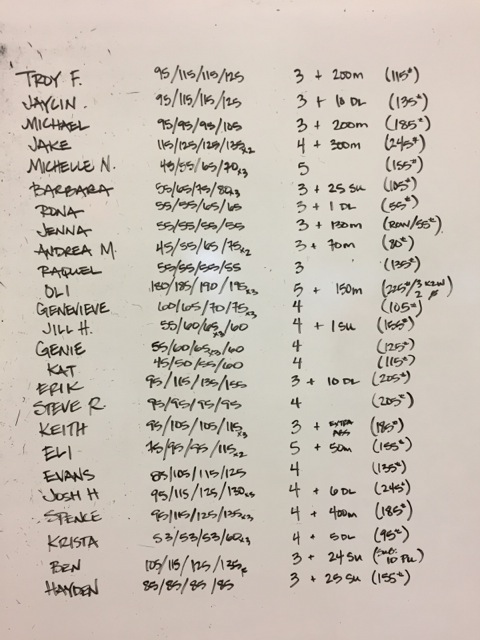 TROY F. 95/115/115/125 3 + 200m (115#)
JAYLIN. 95/115/115/125 3 + 10 DL (135#)
MICHAEL 95/95/95/105 3 + 200m (185#)
JAKE 115/125/125/135x2 4 + 300m (245#)
MICHELLE N. 45/55/65/70x3 5 (155#)
BARBARA 55/65/75/80x3 3 + 25 SU (105#)
RONA 55/55/65/65 3 + 1 DL (55#)
JENNA 55/55/55/55 3 + 130m (ROW/55#)
ANDREA M. 45/55/65/75x2 3 + 70m (80#)
RAQUEL 55/55/55/55 3 (135#)
OLI 180/185/190/195x3 5 + 150m (225#/3
GENEVIEVE 60/65/70/75x3 4 (105#)
JILL H. 55/60/65x3/60 4 + 1 SU (155#)
GENIE 55/60/65x3/60 4 (125#)
KAT 45/50/55/60 4 (115#)
ERIK 95/115/135/155 3 + 10 DL (205#)
STEVE R 95/95/95/95 4 (205#)
KEITH 95/105/105/115x3 3 + EXTRA ABS (185#)
ELI 75/95/95/115x2 5 + 50m (155#)
EVANS 85/105/115/125 4 (135#)
JOSH H 95/115/125/130x3 4 + 6 DL (245#)
SPENCE 95/115/125/135x3 4 + 400m (185#)
KRISTA 53/53/53/60x3 4 + 5 DL (95#)
BEN 105/115/125/135 3 + 24 SU (SUB: 10 PU)
HAYDEN 85/85/85/85 3 + 25 SU (155#)